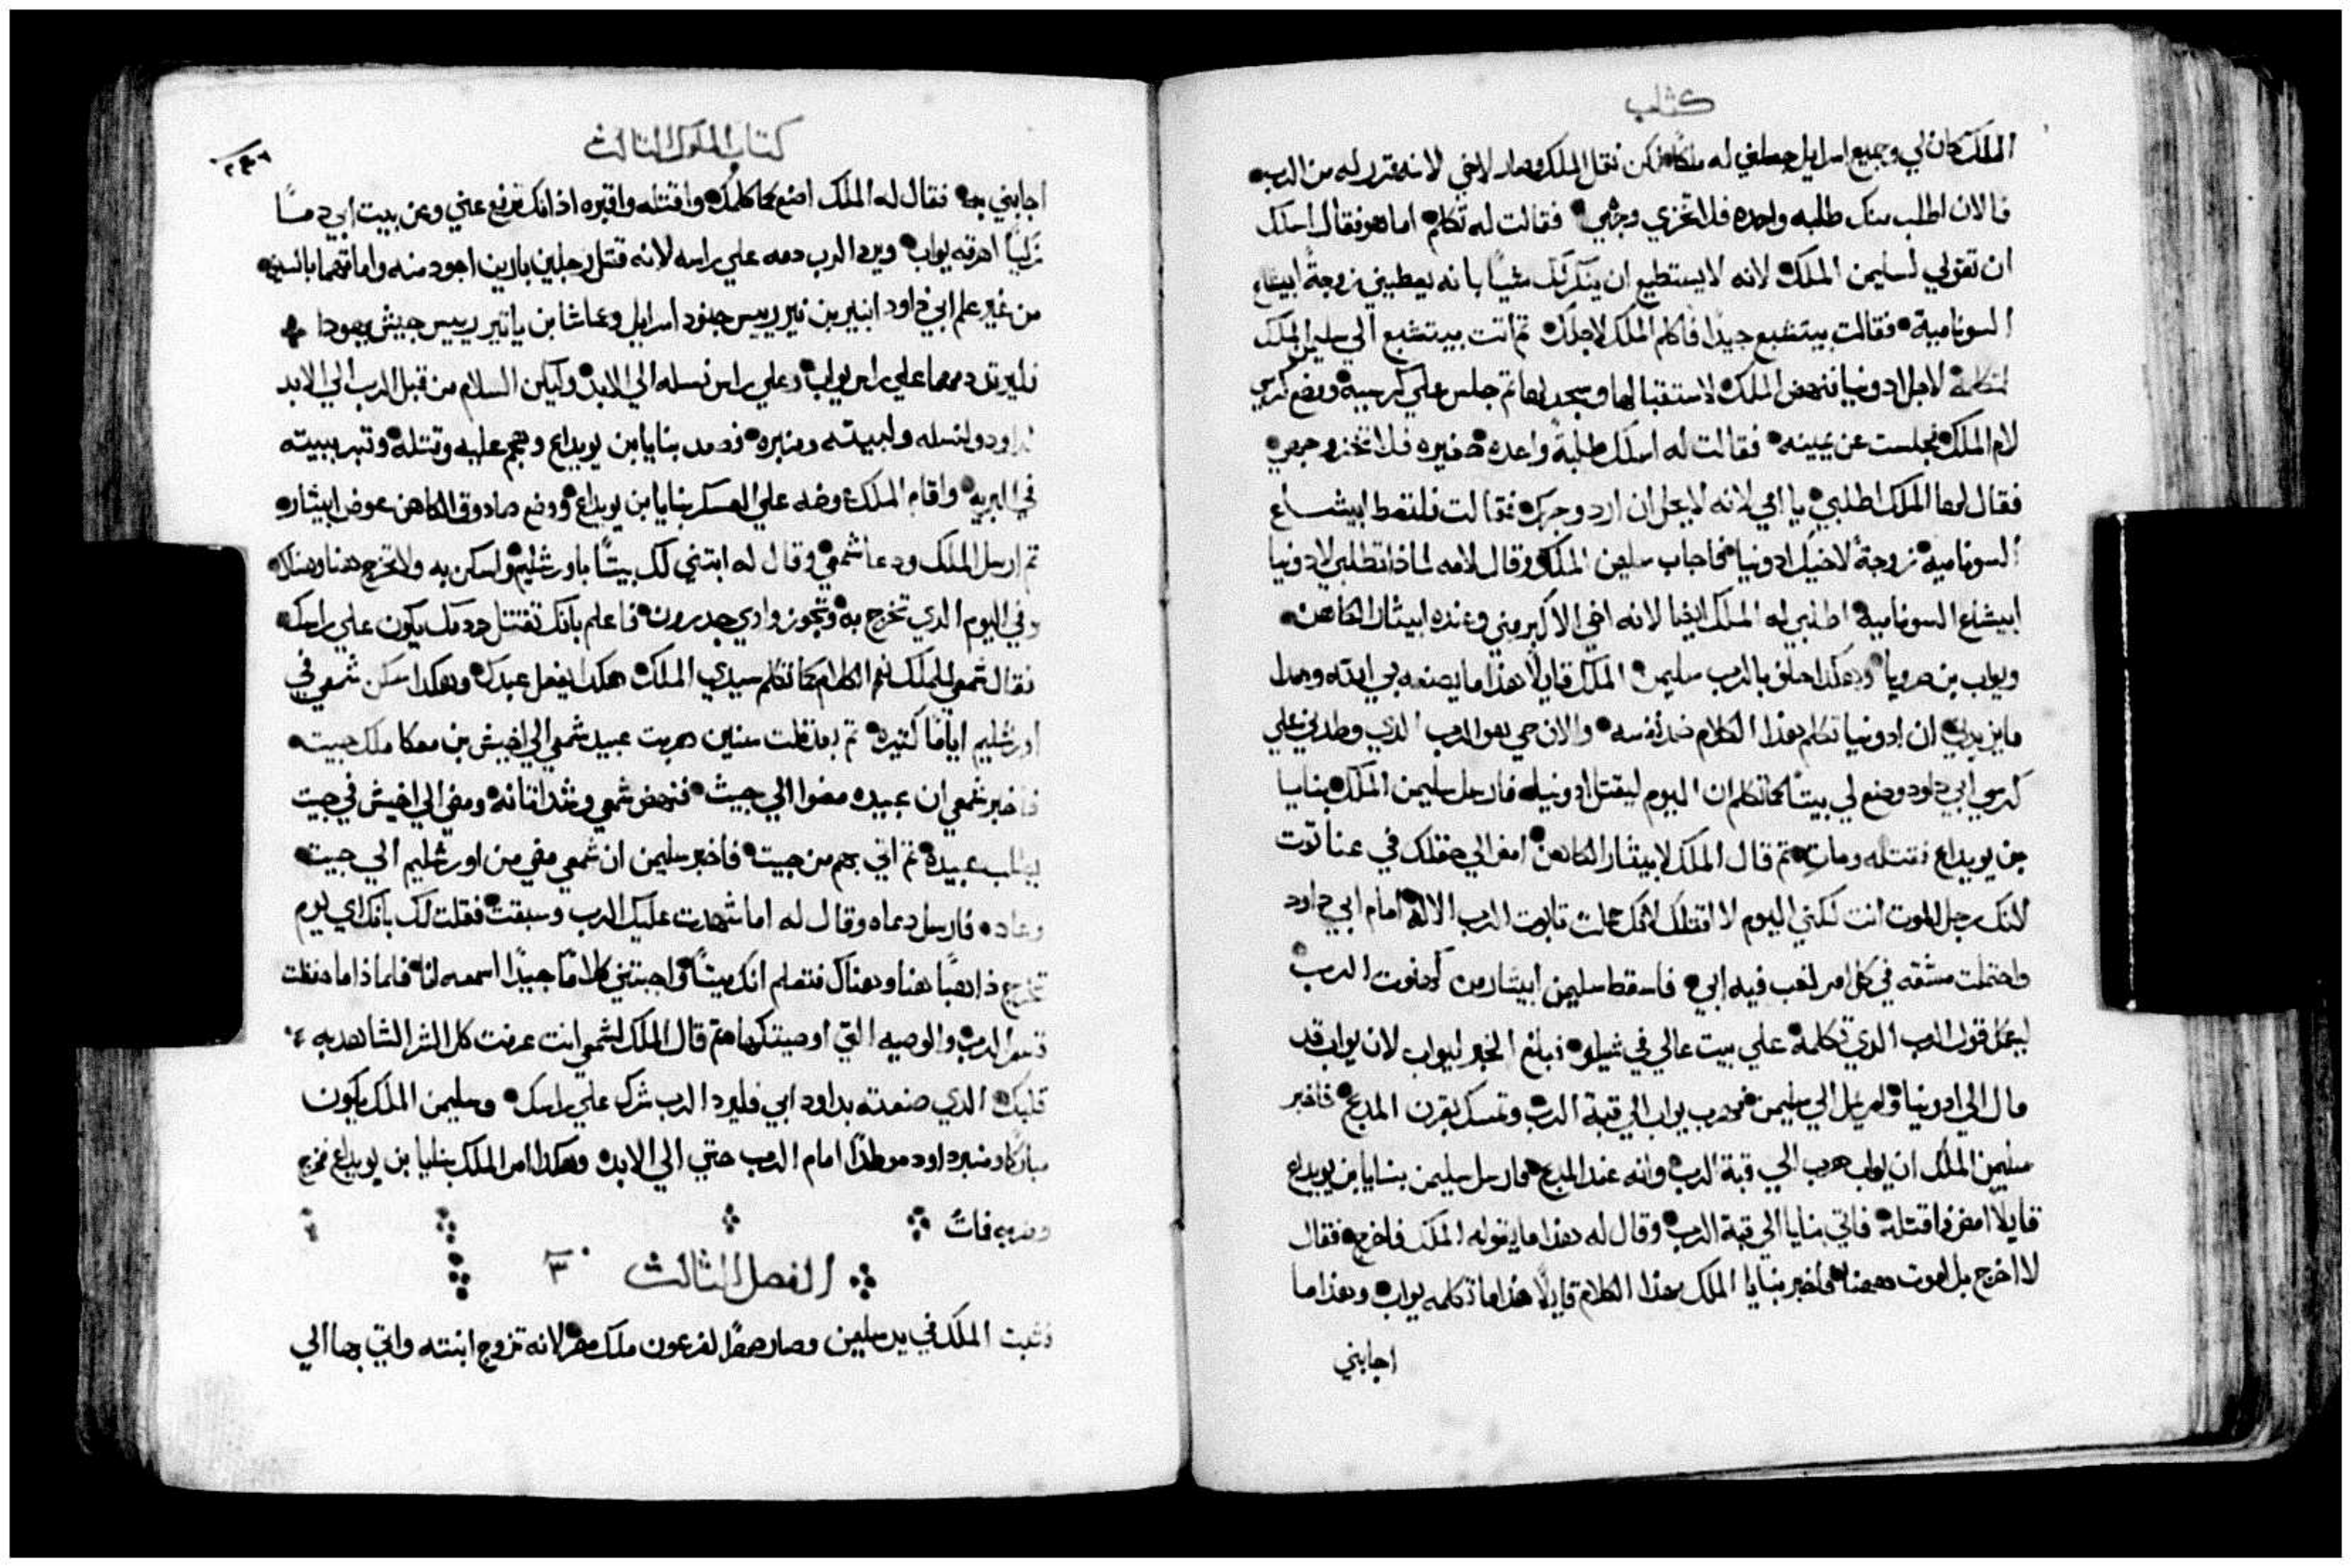 كتاب
الملك كان لي وجميع اسرايل جعلني له ملكا لكن نقل الملك وصار لاخي لانه قدر له من الرب
فالان اطلب منك طلبه واحده فلا تخزي وجهي فقالت له تكلم اما هو فقال اسلك
ان تقولي لسليمن الملك لانه لا يستطيع ان ينكر لك شيا بانه يعطيني زوجة ابيشاع
السونامية فقالت بيتشبع جيدا فاكلم الملك لاجلك ثم اتت بيتشبع الي سليمن الملك
لتكلمة لاجل ادونيا فنهض الملك لاستقبالها وسجد لها ثم جلس علي كرسيه ووضع كرسي
لام الملك فجلست عن يمينه فقالت له اسلك طلبة واحده صغيره فلا تخز وجهي
فقال لها الملك اطلبي يا امي لانه لا يحل ان ارد وجهك فقالت فلتعط ابيشاع
السونامية زوجة لاخيك ادونيا فاجاب سليمن الملك وقال لامه لماذا تطلبي لادونيا
ابيشاع السونامية اطلبي له الملك ايضا لانه اخي الاكبر مني وعنده ابيثار الكاهن
ويواب بن صرويا وهكذا حلف بالرب سليمن الملك قايلا هذا ما يصنعه بي الله وهذا
ما يزيدني ان ادونيا تكلم بهذا الكلام ضد نفسه والان حي هو الرب الذي وطدني علي
كرسي ابي داود وصنع لي بيتا كما تكلم ان اليوم ليقتل ادونيا فارسل سليمن الملك بنايا
بن يويداع فقتله ومات ثم قال الملك لابيثار الكاهن امض الي حقلك في عناتوت
لانك رجل الموت انت لكني اليوم لا اقتلك لانك حملت تابوت الرب الاله امام ابي داود
واحتملت مشقه في كل امر لغب فيه ابي فاسقط سليمن ابيثار من كهنوت الرب
ليكمل قول الرب الذي تكلمه علي بيت عالي في شيلو فبلغ الخبر ليواب لان يواب قد
مال الي ادونيا ولم يمل الي سليمن فهرب يواب الي قبة الرب وتمسك بقرن المدبح فاخبر
سليمن الملك ان يواب هرب الي قبة الرب وانه عند المدبح فارسل سليمن بنايا بن يويداع
قايلا امض واقتله فاتي بنايا الي قبة الرب وقال له هذا ما يقوله الملك فاخرج فقال
لا اخرج بل اموت ههنا فاخبر بنايا الملك بهذا الكلام قايلا هذا ما تكلمه يواب وهذا ما
اجابني
كتاب الملوك الثالث
٢٤٦
اجابني به فقال له الملك اصنع كما كلمك واقتله واقبره اذ انك ترفع عني وعن بيت ابي دما
زكيا اهرقه يواب ويرد الرب دمه علي راسه لانه قتل رجلين بارين اجود منه واماتهما بالسيف
من غير علم ابي داود ابنير بن نير رييس جنود اسرايل وعماشا بن ياتير رييس جيش يهودا
فليرتد دمهما علي راس يواب وعلي راس نسله الي الابد وليكن السلام من قبل الرب الي الابد
لداود ولنسله ولبيته ومنبره فصعد بنايا بن يويداع وهجم عليه وقتله وقبر ببيته
في البريه واقام الملك عوضه علي العسكر بنايا بن يويداع ووضع صادوق الكاهن عوض ابيثار
ثم ارسل الملك ودعا شمعي وقال له ابتني لك بيتا باورشليم واسكن به ولا تخرج هنا وهناك
وفي اليوم الدي تخرج به وتجوز وادي جدرون فاعلم بانك تقتتل ودمك يكون علي راسك
فقال شمعي للملك نعم الكلام كما تكلم سيدي الملك هكدا يفعل عبدك وهكدا سكن شمعي في
اورشليم اياما كتيره تم بعد تلت سنين هربت عبيد شمعي الي اخيش بن معكا ملك جيت
فاخبر شمعي ان عبيده مضوا الي جيت فنهض شمعي وشد اتانه ومضي الي اخيش في جيت
يطلب عبيده تم اتي بهم من جيت فاخبر سليمن ان شمعي مضي من اورشليم الي جيت
وعاد فارسل دعاه وقال له اما شهدت عليك الرب وسبقت فقلت لك بانك اي يوم
تخرج ذاهبا هنا وهناك فتعلم انك ميتا واجبتني كلاما جيدا اسمعه انا فلماذا ما حفظت
قسم الرب والوصيه التي اوصيتك بها ثم قال الملك لشمعي انت عرفت كل الشر الشاهد به
قلبك الدي صنعته بداود ابي فليرد الرب شرك علي راسك وسليمن الملك يكون
مباركا ومنبر داود موطدا امام الرب حتي الي الابد وهكدا امر الملك بنايا بن يويداع فخرج
وضربه فمات
الفصل الثالث ٣
فثبت الملك في يد سليمن وصار صهرا لفرعون ملك مصر لانه تزوج ابنته واتي بها الي